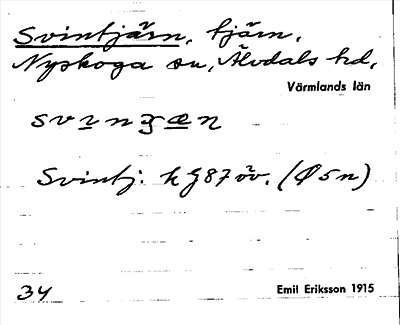 Svintjärn, tjärn,
Nyskoga sn, Älvdals hd,
Värmlands län
svinʒæn
Svintj: k G87 öv. (Ø5n)
34
Emil Eriksson 1915